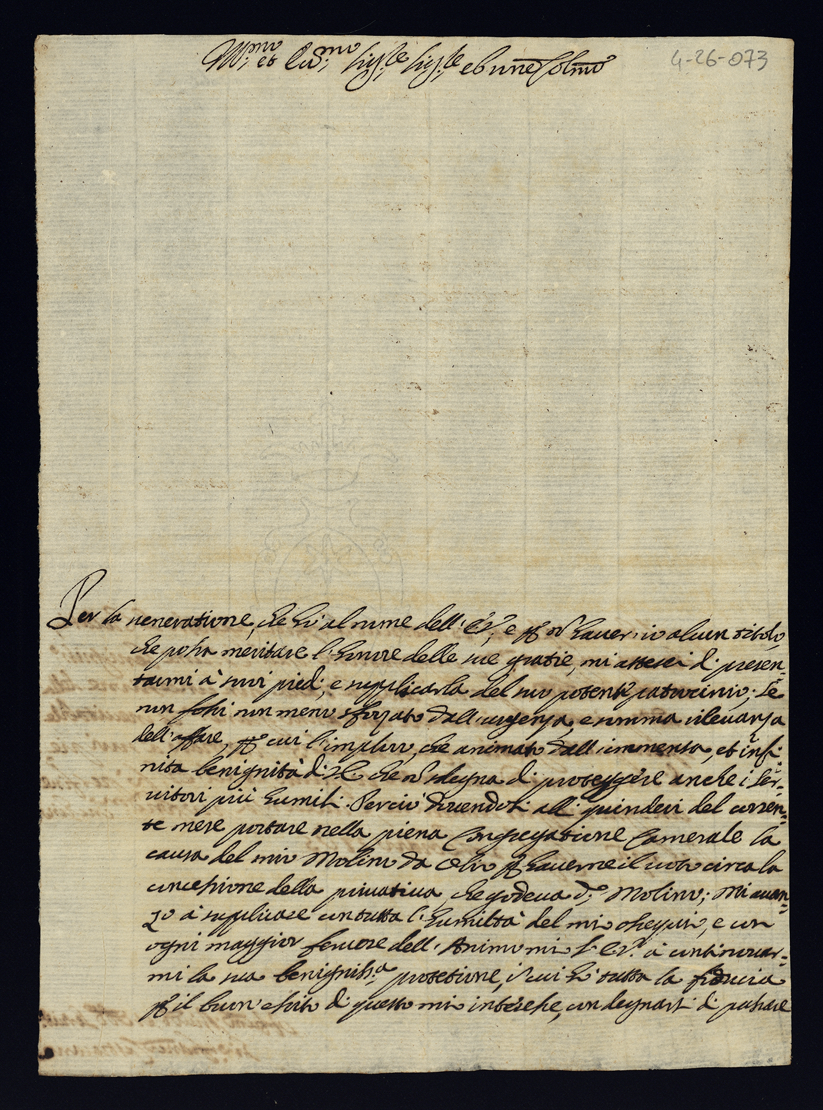 Ill.mo et Ecc.mo Sig.re Sig.re et P'rone Col.mo
4-26-073
Per la veneratione, che hò al nume dell'E.V., e p non haver io alcun titolo,
che possa meritare l'honore delle sue gratie, mi asterrei di presen-
tarmi à suoi piedi, e supplicarla del suo potente patrocinio; se
non fossi non meno sforzato dall'urgenza, e somma rilevanza
dell'affare, p cui l'imploro, che animato dall'immensa, et infi-
nita benignità di che non sdegna di proteggere anche i ser-
vitori più humili. Perciò dovendosi alli quindeci del corren-
te mese portare nella piena Congregatione Camerale la
causa del mio Molino da Olio p haverne il voto circa la
concessione della privativa, che godeva d.o Molino; Mi avan-
zo à supplicare con tutta l'humiltà del mio ossequio, e con
ogni maggior fervore dell'Animo mio l'E.V. à continuar-
mi la sua benigniss.a protetione, in cui hò tutta la fiducia
p il buon esito di questo mio interesse, con degnarsi di passare